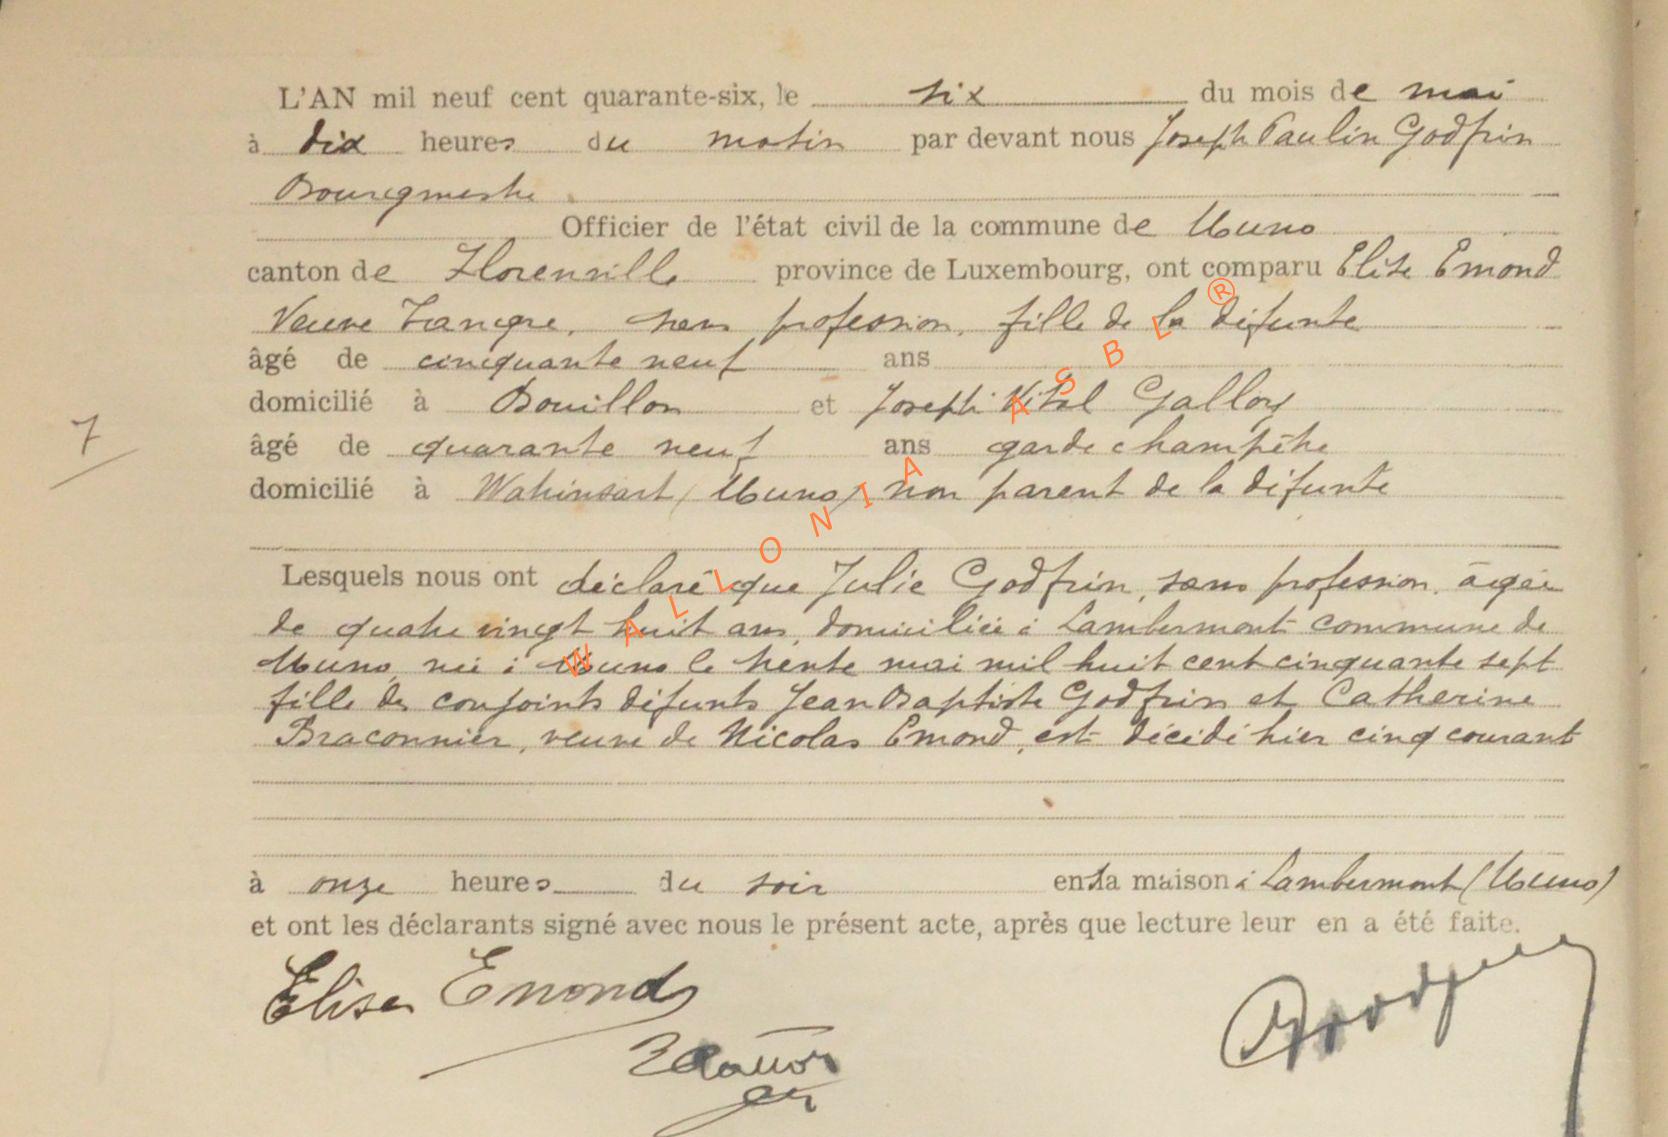 L'AN mil neuf cent quarante-six, le six du mois de mai
à dix heures du matin par devant nous Joseph Paulin Godfrin
Bourgmestre
Officier de l'état civil de la commune de Muno
canton de Florenville province de Luxembourg, ont comparu Elise Emond
Veuve sans profession, fille de la défunte
âgé de cinquante neuf ans
domicilié à Bouillon et Joseph Vital Galloy
âgé de quarante neuf ans garde champêtre
domicilié à Watrinsart (Muno) non parent de la défunte
Lesquels nous ont déclaré que Julie Godfrin, sans profession, âgée
de quatre vingt huit ans, domiciliée à Lambermont commune de
Muno, née à Muno le trente mai mil huit cent cinquante sept
fille des conjoints défunts Jean Baptiste Godfrin et Catherine
Braconnier, veuve de Nicolas Emond, est décédé hier cinq courant
à onze heures du soir en sa maison à Lambermont (Muno)
et ont les déclarants signé avec nous le présent acte, après que lecture leur en a été faite.
Elise Emond
7
WALLONIA ASBL ®